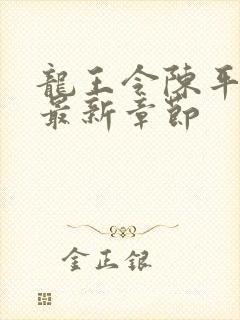 龍王令陳平
最新章節
金正銀